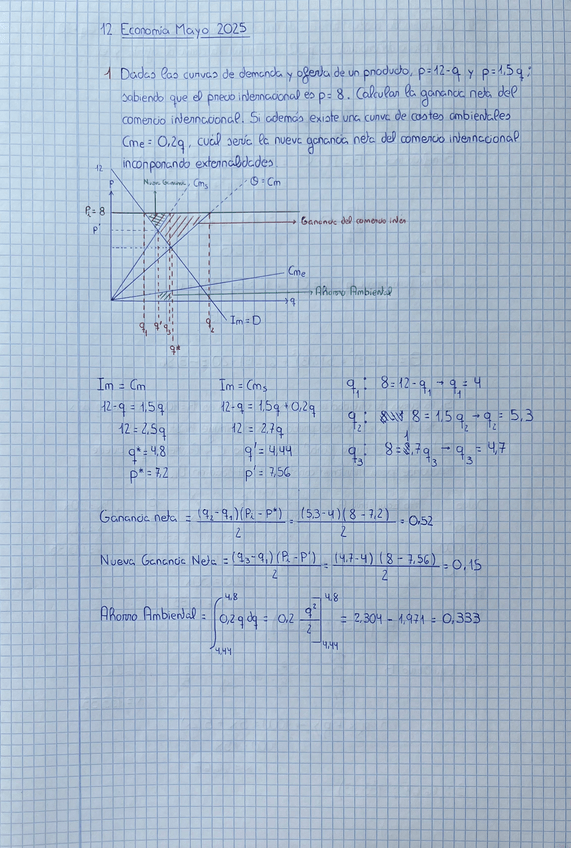 12 Economía Mayo 2025
1 Dadas las curvas de demanda y oferta de un producto, p=12-q y p=1,5q;
sabiendo que el precio internacional es p=8. Calcular la ganancia neta del
comercio internacional. Si además existe una curva de costes ambientales
Cme = 0,2q, cual sería la nueva ganancia neta del comercio internacional
incorporando externalidades
12
P
Nueva Ganancia
Cms
O=Cm
Pi=8
Ganancia del comercio inter
P'
Cme
Ahorro Ambiental
q
q1 q' q3 q2
Im=D
q*
Im = Cm
12-q = 1,5q
12 = 2,5q
q* = 4,8
p* = 7,2
Im = Cms
12-q = 1,5q + 0,2q
12 = 2,7q
q' = 4,44
p' = 7,56
q1: 8=12-q1 → q1=4
q2: 8=1,5q2 → q2=5,3
q3: 8=1,7q3 → q3=4,7
Ganancia neta = (q2-q1)(Pi-P*)/2 = (5,3-4)(8-7,2)/2 = 0,52
Nueva Ganancia Neta = (q3-q1)(Pi-P')/2 = (4,7-4)(8-7,56)/2 = 0,15
Ahorro Ambiental = ∫4,44 4,8 0,2q dq = 0,2 q²/2 ]4,44 4,8 = 2,304 - 1,971 = 0,333